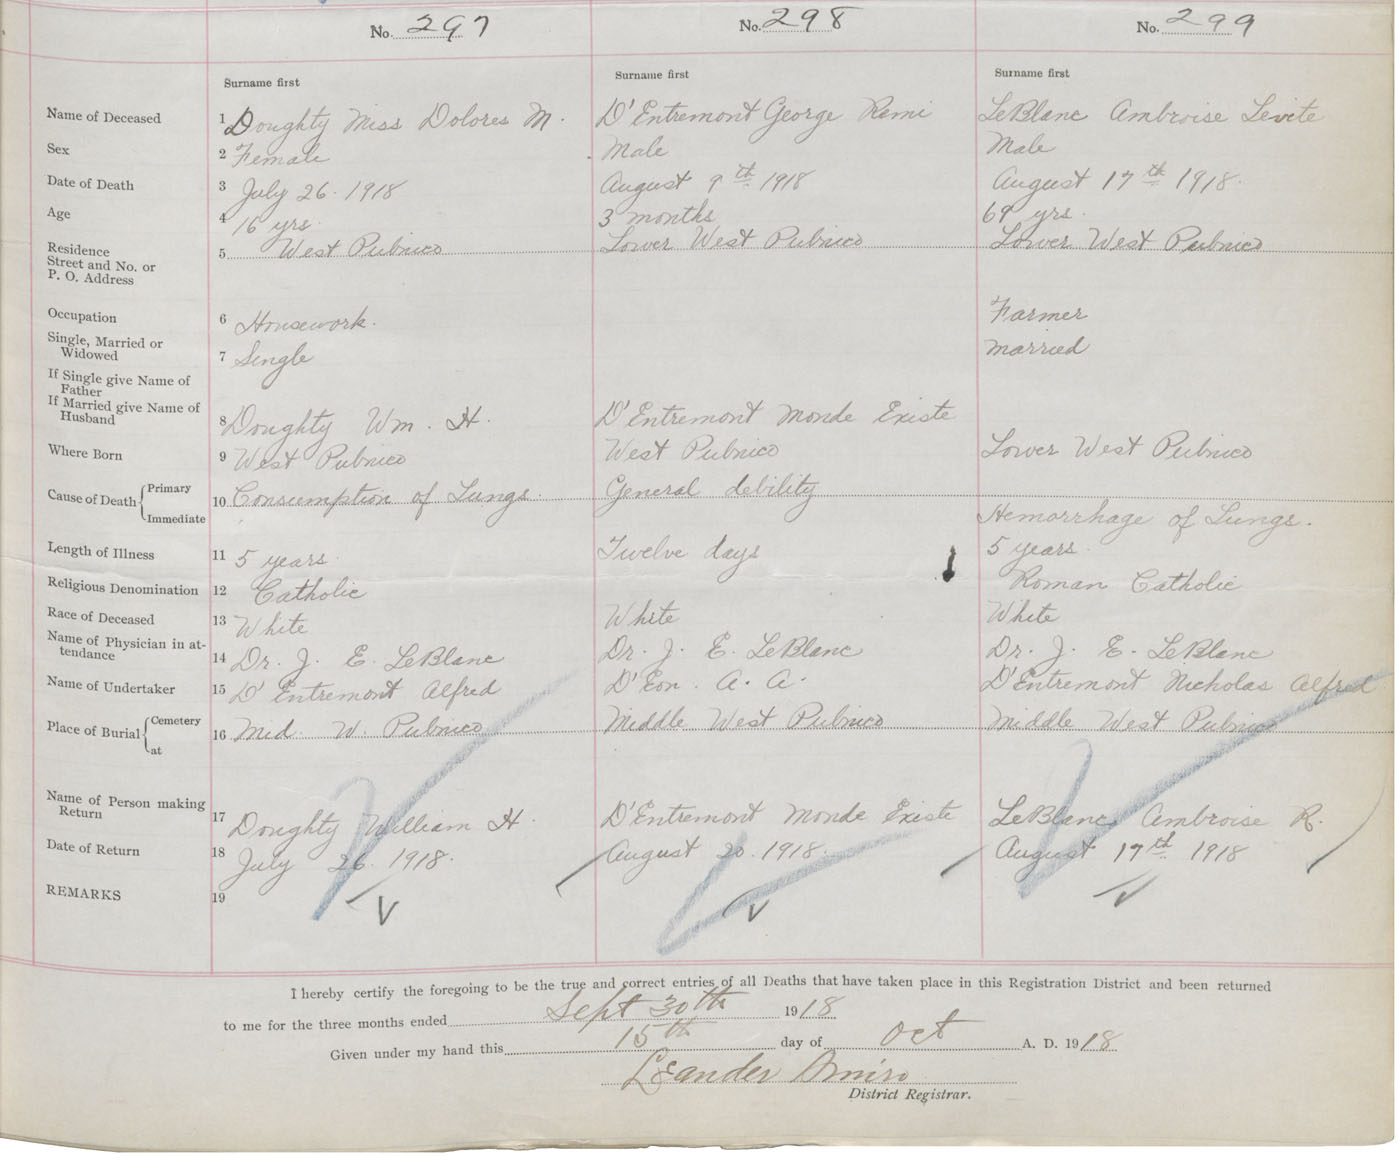 No. 297 No. 298 No. 299
Surname first Surname first Surname first
Name of Deceased 1 Doughty Miss Dolores M. D'Entremont George Remi LeBlanc Ambroise Levite
Sex 2 Female Male Male
Date of Death 3 July 26. 1918 August 9th 1918 August 17th 1918.
Age 4 16 yrs. 3 months 69 yrs.
Residence
Street and No. or
P. O. Address 5 West Pubnico Lower West Pubnico Lower West Pubnico
Occupation 6 Housework. Farmer
Single, Married or
Widowed 7 Single Married
If Single give Name of
Father
If Married give Name of
Husband 8 Doughty Wm. H. D'Entremont Monde Existe
Where Born 9 West Pubnico West Pubnico Lower West Pubnico
Cause of Death Primary 10 Consumption of Lungs. General debility
Immediate Hemorrhage of Lungs.
Length of Illness 11 5 years. Twelve days 5 years.
Religious Denomination 12 Catholic Roman Catholic
Race of Deceased 13 White White White
Name of Physician in at-
tendance 14 Dr. J. E. LeBlanc Dr. J. E. LeBlanc Dr. J. E. LeBlanc
Name of Undertaker 15 D'Entremont Alfred D'Eon. A. A. D'Entremont Nicholas Alfred
Place of Burial Cemetery at 16 Mid. W. Pubnico Middle West Pubnico Middle West Pubnico
Name of Person making
Return 17 Doughty William H. D'Entremont Monde Existe LeBlanc Ambroise R.
Date of Return 18 July 26. 1918. August 20. 1918. August 17th 1918
REMARKS 19
I hereby certify the foregoing to be the true and correct entries of all Deaths that have taken place in this Registration District and been returned
to me for the three months ended Sept 30th 1918
Given under my hand this 15th day of Oct A. D. 1918
Leander Amiro
District Registrar.